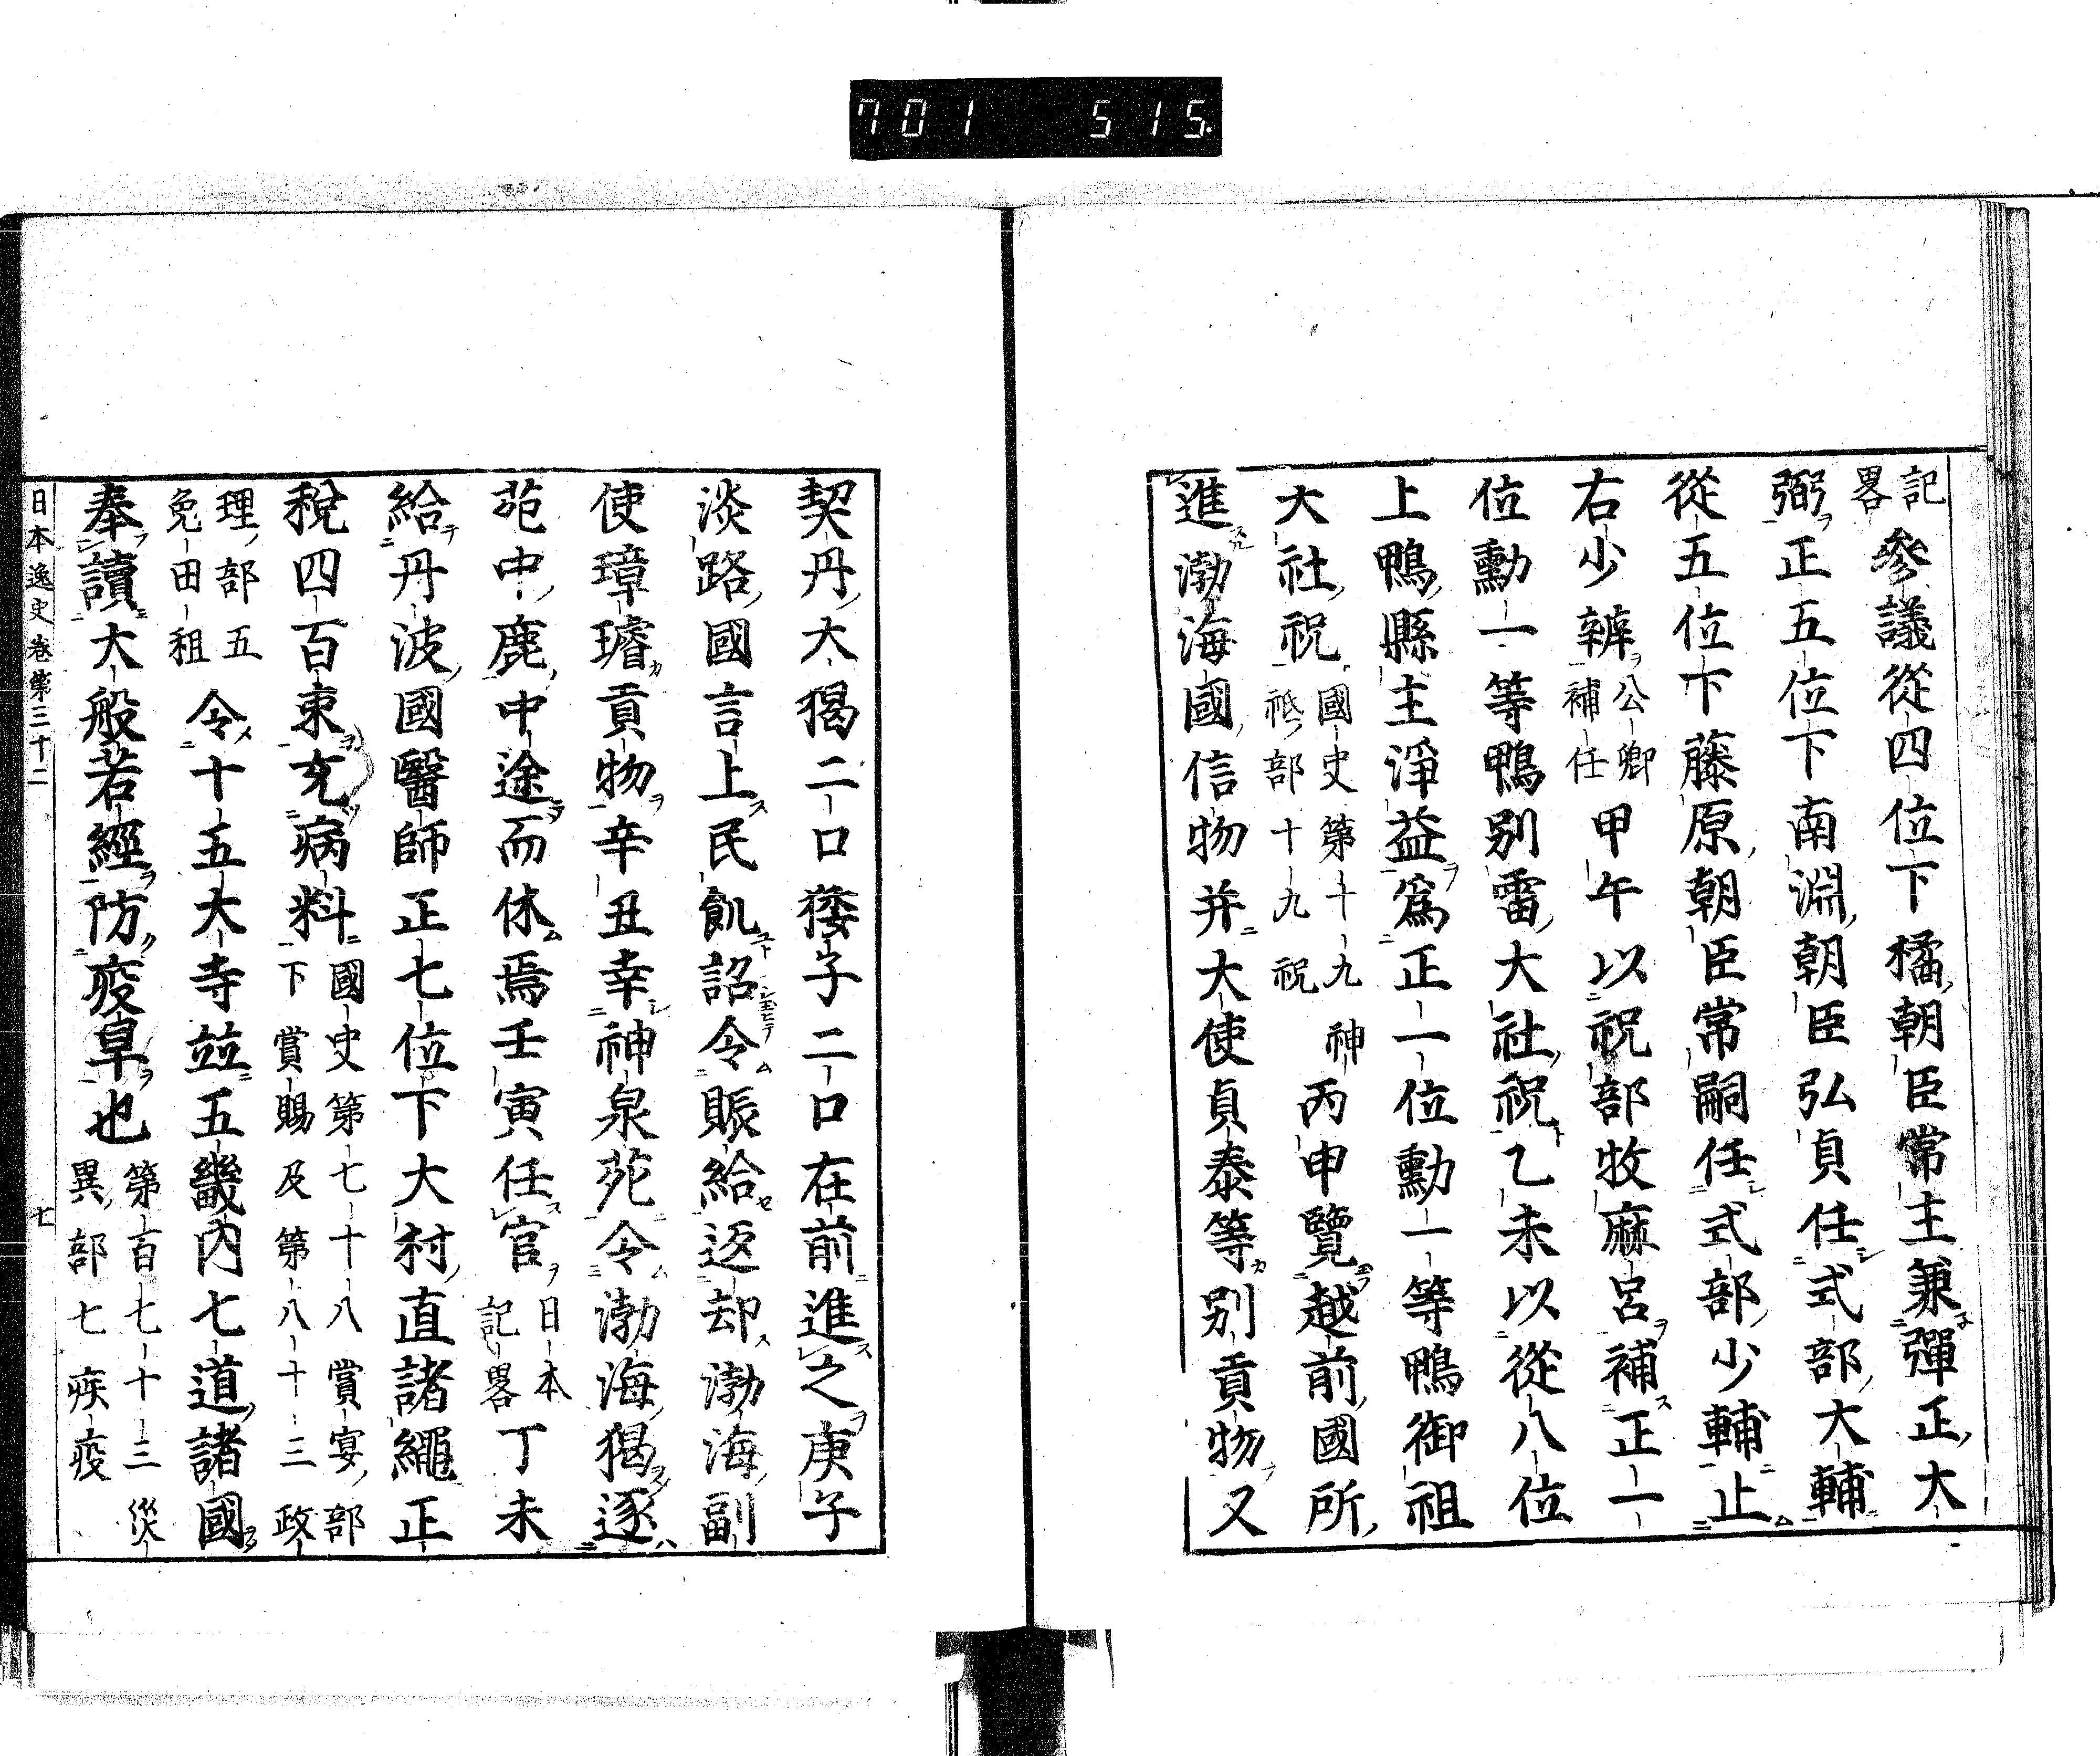 701 515
記畧參議從四位下橘朝臣常主兼彈正大
弼正五位下南淵朝臣弘貞任式部大輔
從五位下藤原朝臣常嗣任式部少輔止
右少辨公卿補任甲午以祝部牧麻呂補正一
位勳一等鴨別雷大社祝乙未以從八位
上鴨縣主淨益爲正一位勳一等鴨御祖
大社祝國史第十九神祇部十九祝丙申覽越前國所
進渤海國信物并大使貞泰等別貢物又
契丹大猲二口㹻子二口在前進之庚子
淡路國言上民飢詔令賑給返却渤海副
使璋璿貢物辛丑幸神泉苑令渤海猲逐
苑中鹿中途而休焉壬寅任官日本記畧丁未
給丹波國醫師正七位下大村直諸繩正
稅四百束充病料國史第七十八賞宴部下賞賜及第八十三政
理部五免田租令十五大寺竝五畿內七道諸國
奉讀大般若經防疫旱也第百七十三災異部七疾疫
日本逸史卷第三十二 七